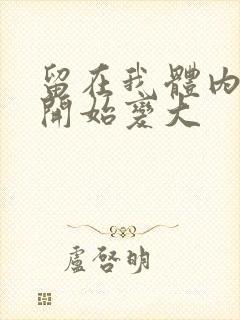 留在我體內
開始變大
盧啓明